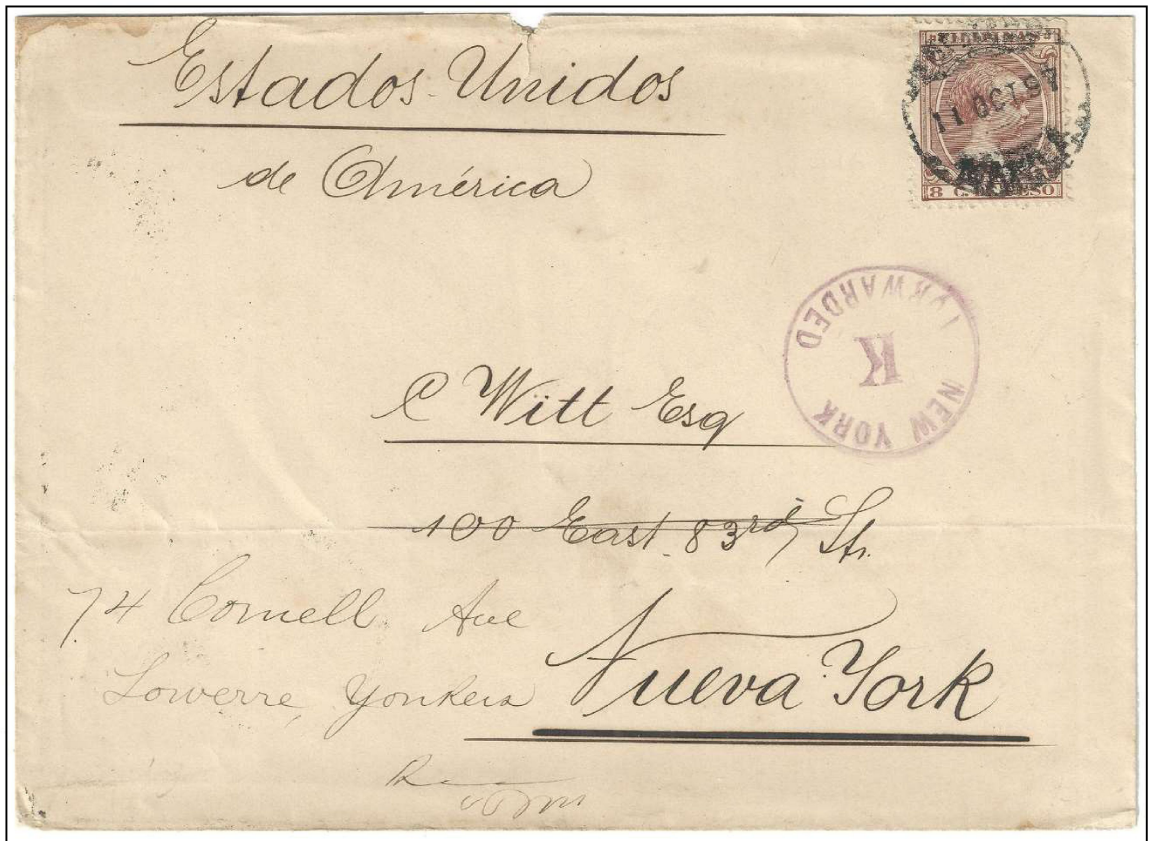 Estados Unidos
de América
FILIPINAS
11 OCT 97
MANILA
8 C. PESO
NEW YORK
K
FORWARDED
C Witt Esq
100 East 83rd St.
74 Cornell Ave
Lowerre, Yonkers
Nueva York